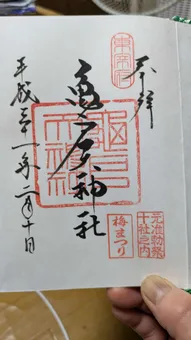 奉拝
東宰府
亀戸天神社
元准勅祭
十社之内
梅まつり
平成三十一年二月十日